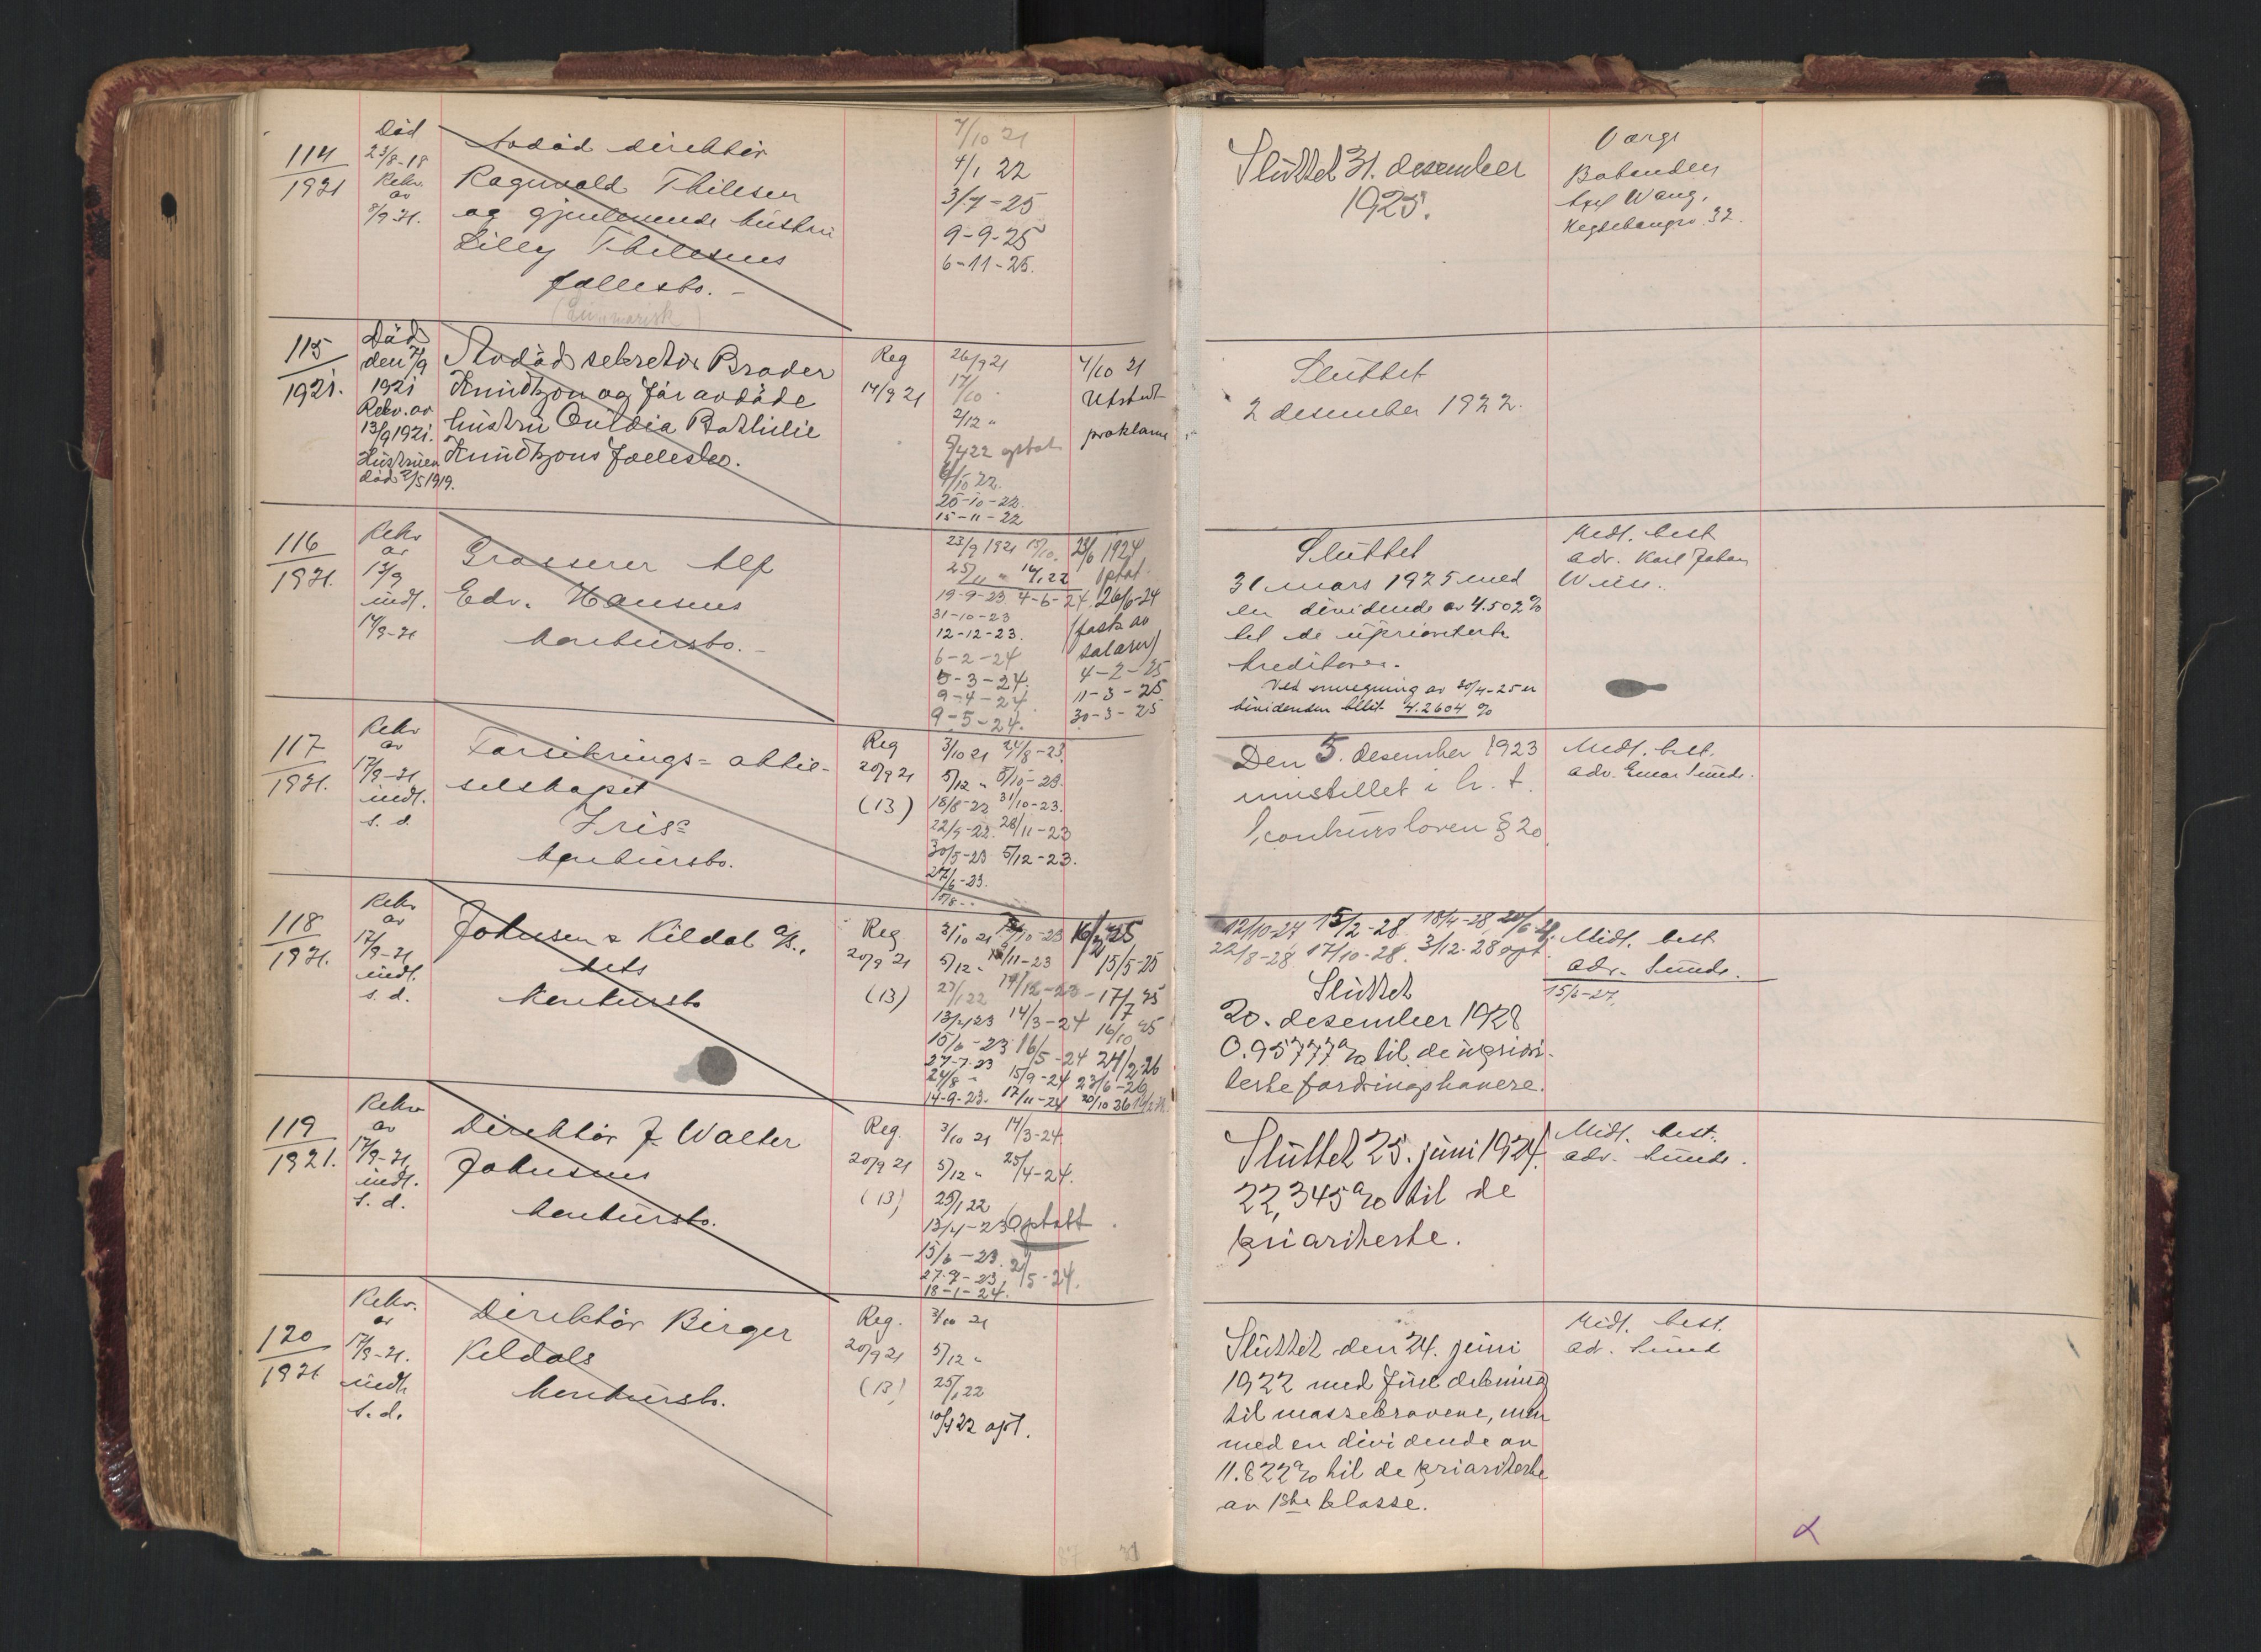 114
1921
Død
23/8-18
Rekv.
av
8/9 21.
Avdød direktør
Ragnvald Thilesen
og gjenlevende hustru
Lilly Thilesens
fællesbo. –
4/10 21
4/1 22
3/7-25
9-9-25
6-11-25.
Sluttet 31. desember
1925.
Verge
Axel Wang,
115
1921.
Død
den 7/9
1921
Rekv. av
13/9 1921.
Hustruen
død 2/5 1919.
Avdød sekretær Broder
Knudtzon og før avdøde
hustru
Knudtzons fællesbo.
Reg
14/9 21
26/9 21
17/10
2/12 "
4/10 22.
25-10-22.
15-11-22
4/10 21
Utstedt
proklama
Sluttet
2 desember 1922.
116
1921.
Rekv
av
13/9
indl.
14/9-21
Grosserer Alf
Edv. Hansens
konkursbo. –
23/9 1921
19-9-23. 4-6-24.
31-10-23
12-12-23.
6-2-24
5-3-24.
9-4-24
9-5-24.
23/6 1924
optat.
26/6-24
(fasts. av
salærer)
4-2-25
11-3-25
30-3-25
Sluttet
31 mars 1925 med
en dividende av 4.502%
til de uprioriterte
kreditorer.
Ved omregning av 30/4-25 er
dividenden blit 4.2604 %
Midl. best
adv. Karl Johan
117
1921.
Rekv
av
17/9-21
indl.
s. d.
Forsikrings-aktie-
selskapet
"Iris"
konkursbo.
Reg
20/9 21
(13)
3/10 21 24/8-23.
5/12 " 5/10-23.
18/8-22 31/10-23.
22/9-22. 28/11-23
30/5-23 5/12-23.
27/6-23.
Den 5. desember 1923
innstillet i h. t.
konkursloven § 20.
Midl. best.
adv. Einar Sunde.
118
1921.
Rekv
av
17/9-21
indl.
s. d.
Johnsen & Kildal A/S.,
dets
konkursbo
Reg
20/9 21
(13)
3/10 21
5/12 "
13/4 23 14/3-24 16/10 25
15/6-23 16/5-24 24/2 26
27-7-23
24/8 " 15/9-24 23/6-26
14-9-23. 17/11-24 20/10 26
15/5-25
17/7 25
12/10-27 15/2-28. 18/4-28, 20/6 28.
22/8-28 17/10-28. 3/12-28 opt.
Sluttet
20. desember 1928
0.95777% til de upriori-
terte fordringshavere.
Midl. best
adv. Sunde.
15/6-27.
119
1921.
Rekv
av
17/9-21
indl.
s. d.
Direktør J. Walter
Johnsens
konkursbo.
Reg.
20/9 21
(13)
3/10 21 14/3-24.
5/12 " 25/4-24.
25/1 22
13/4-23 Optatt.
15/6-23.
27-7-23 21/5-24.
18-1-24.
Sluttet 25. juni 1924.
22,345% til de
prioriterte.
Midl. best.
adv. Sunde.
120
1921
Rekv.
av
17/9-21.
indl.
s. d.
Direktør Birger
Kildals
konkursbo.
Reg.
20/9 21
(13)
3/10 21
5/12 "
25/1 22
10/4 22 opt.
Sluttet den 24. juni
1922 med full dekning
til massekravene, men
med en dividende av
11.822% til de prioriterte
av 1ste klasse.
Midl. best.
ad. Sund